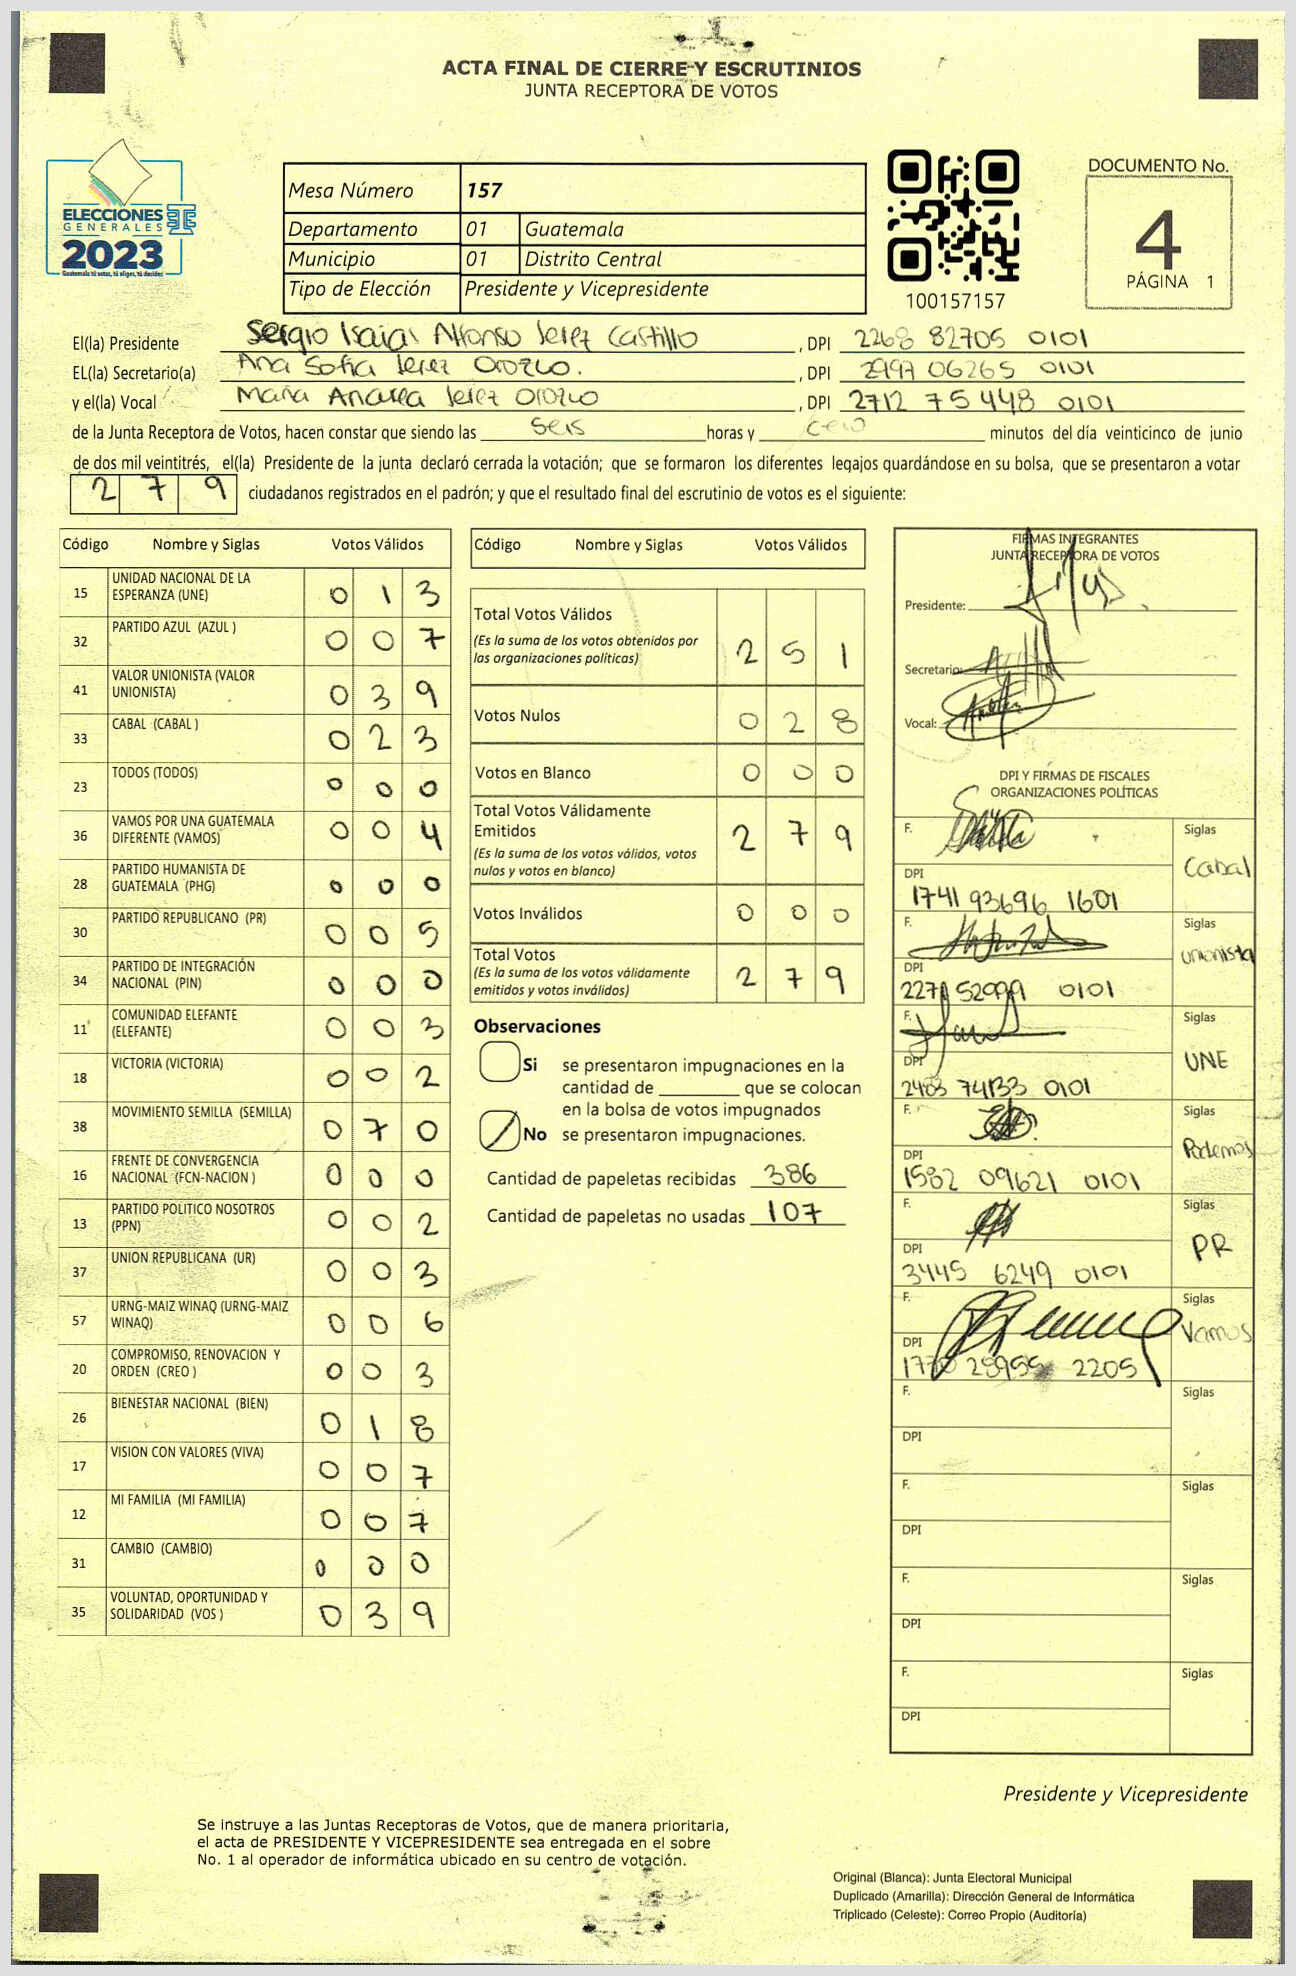 ACTA FINAL DE CIERRE Y ESCRUTINIOS
JUNTA RECEPTORA DE VOTOS
ELECCIONES
GENERALES
2023
Guatemala tú votas, tú eliges, tú decides
Mesa Número 157
Departamento 01 Guatemala
Municipio 01 Distrito Central
Tipo de Elección Presidente y Vicepresidente
100157157
DOCUMENTO No.
4
PÁGINA 1
El(la) Presidente Sergio Isaias Alfonso Jerez Castillo, DPI 2268 82705 0101
EL(la) Secretario(a) Ana Sofia Jerez Orozco., DPI 2997 06265 0101
y el(la) Vocal Maria Andrea Jerez Orozco, DPI 2712 75448 0101
de la Junta Receptora de Votos, hacen constar que siendo las seis horas y cero minutos del día veinticinco de junio
de dos mil veintitrés, el(la) Presidente de la junta declaró cerrada la votación; que se formaron los diferentes legajos guardándose en su bolsa, que se presentaron a votar
2 7 9 ciudadanos registrados en el padrón; y que el resultado final del escrutinio de votos es el siguiente:
Código Nombre y Siglas Votos Válidos
15 UNIDAD NACIONAL DE LA ESPERANZA (UNE) 0 1 3
32 PARTIDO AZUL (AZUL ) 0 0 7
41 VALOR UNIONISTA (VALOR UNIONISTA) 0 3 9
33 CABAL (CABAL ) 0 2 3
23 TODOS (TODOS) 0 0 0
36 VAMOS POR UNA GUATEMALA DIFERENTE (VAMOS) 0 0 4
28 PARTIDO HUMANISTA DE GUATEMALA (PHG) 0 0 0
30 PARTIDO REPUBLICANO (PR) 0 0 5
34 PARTIDO DE INTEGRACIÓN NACIONAL (PIN) 0 0 0
11 COMUNIDAD ELEFANTE (ELEFANTE) 0 0 3
18 VICTORIA (VICTORIA) 0 0 2
38 MOVIMIENTO SEMILLA (SEMILLA) 0 7 0
16 FRENTE DE CONVERGENCIA NACIONAL (FCN-NACION ) 0 0 0
13 PARTIDO POLITICO NOSOTROS (PPN) 0 0 2
37 UNION REPUBLICANA (UR) 0 0 3
57 URNG-MAIZ WINAQ (URNG-MAIZ WINAQ) 0 0 6
20 COMPROMISO, RENOVACION Y ORDEN (CREO ) 0 0 3
26 BIENESTAR NACIONAL (BIEN) 0 1 8
17 VISION CON VALORES (VIVA) 0 0 7
12 MI FAMILIA (MI FAMILIA) 0 0 7
31 CAMBIO (CAMBIO) 0 0 0
35 VOLUNTAD, OPORTUNIDAD Y SOLIDARIDAD (VOS ) 0 3 9
Código Nombre y Siglas Votos Válidos
Total Votos Válidos 2 5 1
(Es la suma de los votos obtenidos por
las organizaciones políticas)
Votos Nulos 0 2 8
Votos en Blanco 0 0 0
Total Votos Válidamente
Emitidos 2 7 9
(Es la suma de los votos válidos, votos
nulos y votos en blanco)
Votos Inválidos 0 0 0
Total Votos
(Es la suma de los votos válidamente
emitidos y votos inválidos) 2 7 9
Observaciones
Si se presentaron impugnaciones en la
cantidad de ________ que se colocan
en la bolsa de votos impugnados
No se presentaron impugnaciones.
Cantidad de papeletas recibidas 386
Cantidad de papeletas no usadas 107
FIRMAS INTEGRANTES
JUNTA RECEPTORA DE VOTOS
Presidente:
Secretario:
Vocal:
DPI Y FIRMAS DE FISCALES
ORGANIZACIONES POLÍTICAS
F. Siglas Cabal
DPI 1741 93696 1601
F. Siglas unionista
DPI 0101
F. Siglas UNE
DPI 0101
F. Siglas Podemos
DPI 1582 09621 0101
F. Siglas PR
DPI 3445 6249 0101
F. Siglas Vamos
DPI 2205
F. Siglas
DPI
F. Siglas
DPI
F. Siglas
DPI
F. Siglas
DPI
Presidente y Vicepresidente
Se instruye a las Juntas Receptoras de Votos, que de manera prioritaria,
el acta de PRESIDENTE Y VICEPRESIDENTE sea entregada en el sobre
No. 1 al operador de informática ubicado en su centro de votación.
Original (Blanca): Junta Electoral Municipal
Duplicado (Amarilla): Dirección General de Informática
Triplicado (Celeste): Correo Propio (Auditoría)